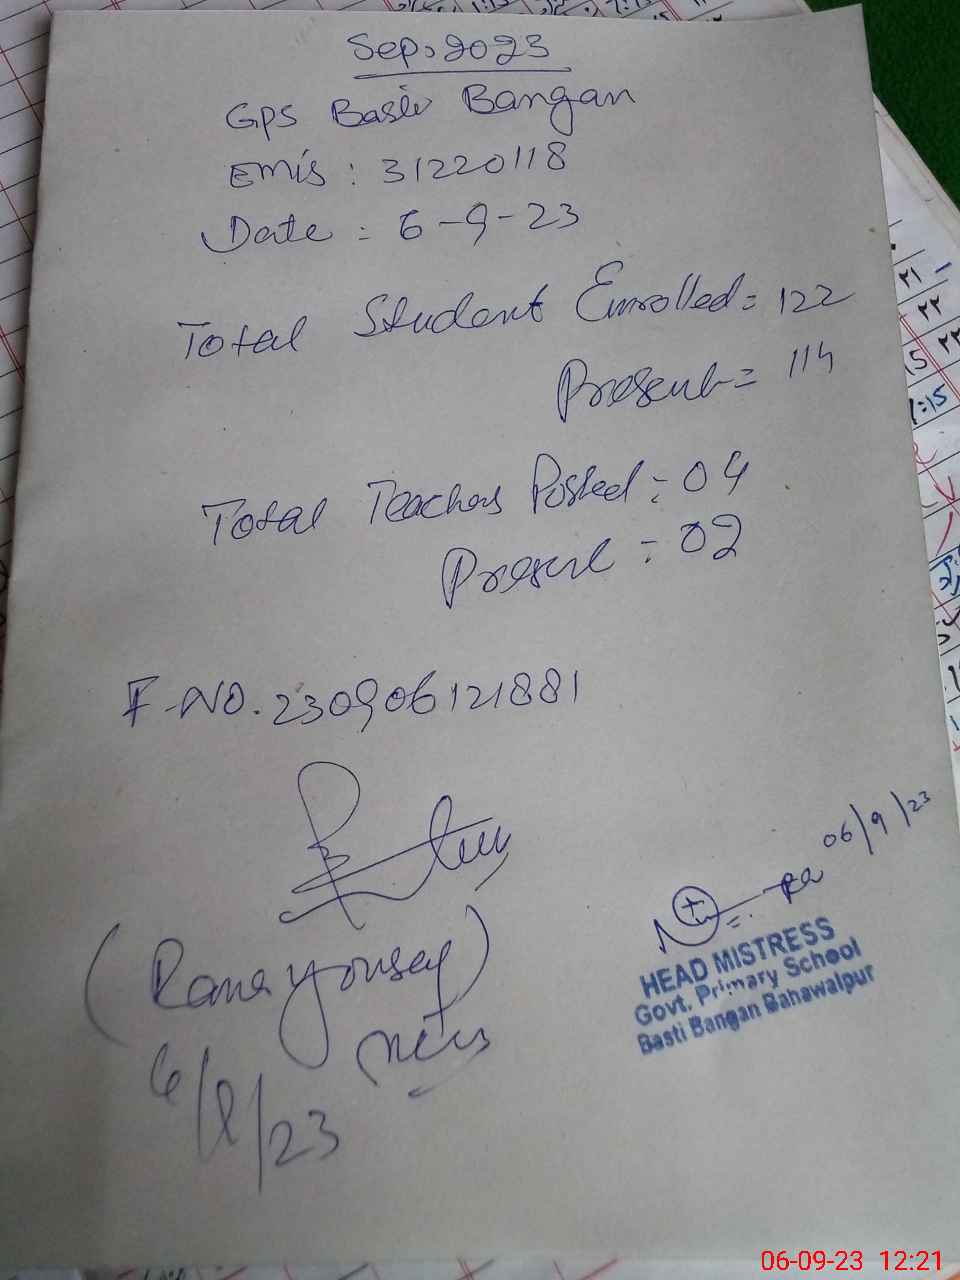 Sep. 2023
GPS Basti Bangan
EMIS : 31220118
Date : 6-9-23
Total Student Enrolled = 122
Present = 114
Total Teachers Posted : 04
Present : 02
F.NO. 230906121881
(Rana Yousaf)
6/9/23
06/9/23
HEAD MISTRESS
Govt. Primary School
Basti Bangan Bahawalpur
۲۱
۲۲
06-09-23 12:21